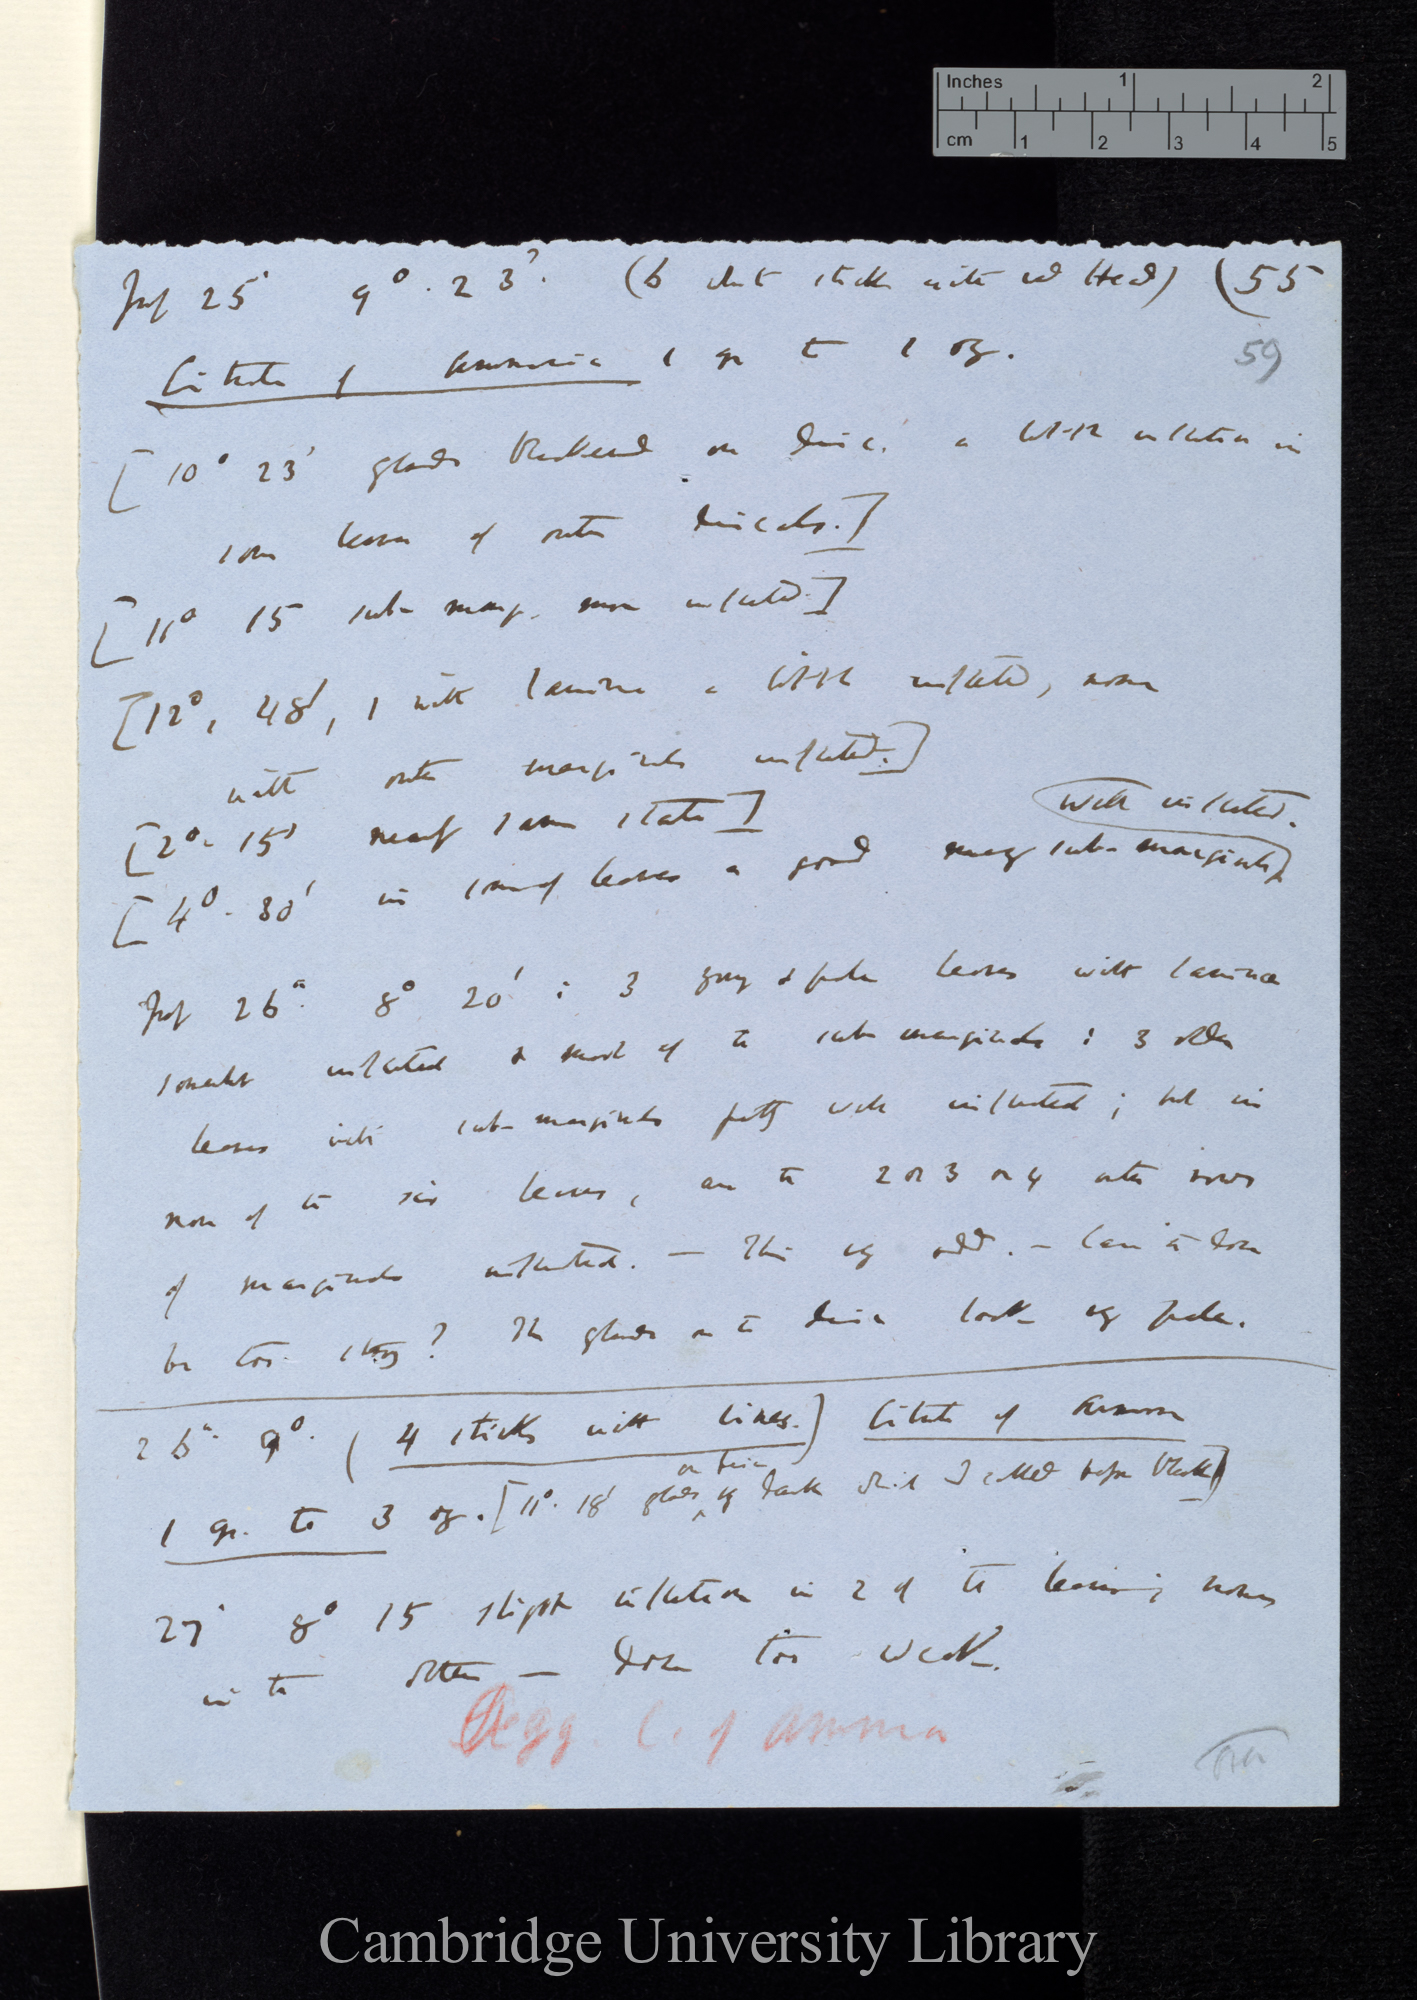 Inches 1 2
cm 1 2 3 4 5
July 25' 9° . 23'. (6 short sticks with red Head) (55
Citrate of ammonia 1 gr to 1 oz. 59
[10° 23' glands blackened on disc. a little inflection in
some leaves of outer discals.]
[11° 15 sub-marg. more inflected.]
[12°, 48', 1 with lamina a little inflected, none
with outer marginals inflected.]
[2°. 15' nearly same state] well inflected.
[4°. 30' in some of leaves a good many sub-marginals]
July 26" 8° 20' : 3 young & pale leaves with lamina
somewhat inflected & most of the sub-marginals : 3 older
leaves with sub-marginals pretty well inflected; but in
none of the six leaves, are the 2 or 3 or 4 outer rows
of marginals inflected. — This very odd. — Can the dose
be too strong? The glands on the disc look very pale.
26" 9°. (4 sticks with lines.) Citrate of ammon
1 gr. to 3 oz. [11°. 18' glands on disc very dark which I called before black]
27' 8° 15 slight inflection in 2 of the leaves; none
in the others — dose too weak.
Aggg. C. of Ammonia
Cambridge University Library